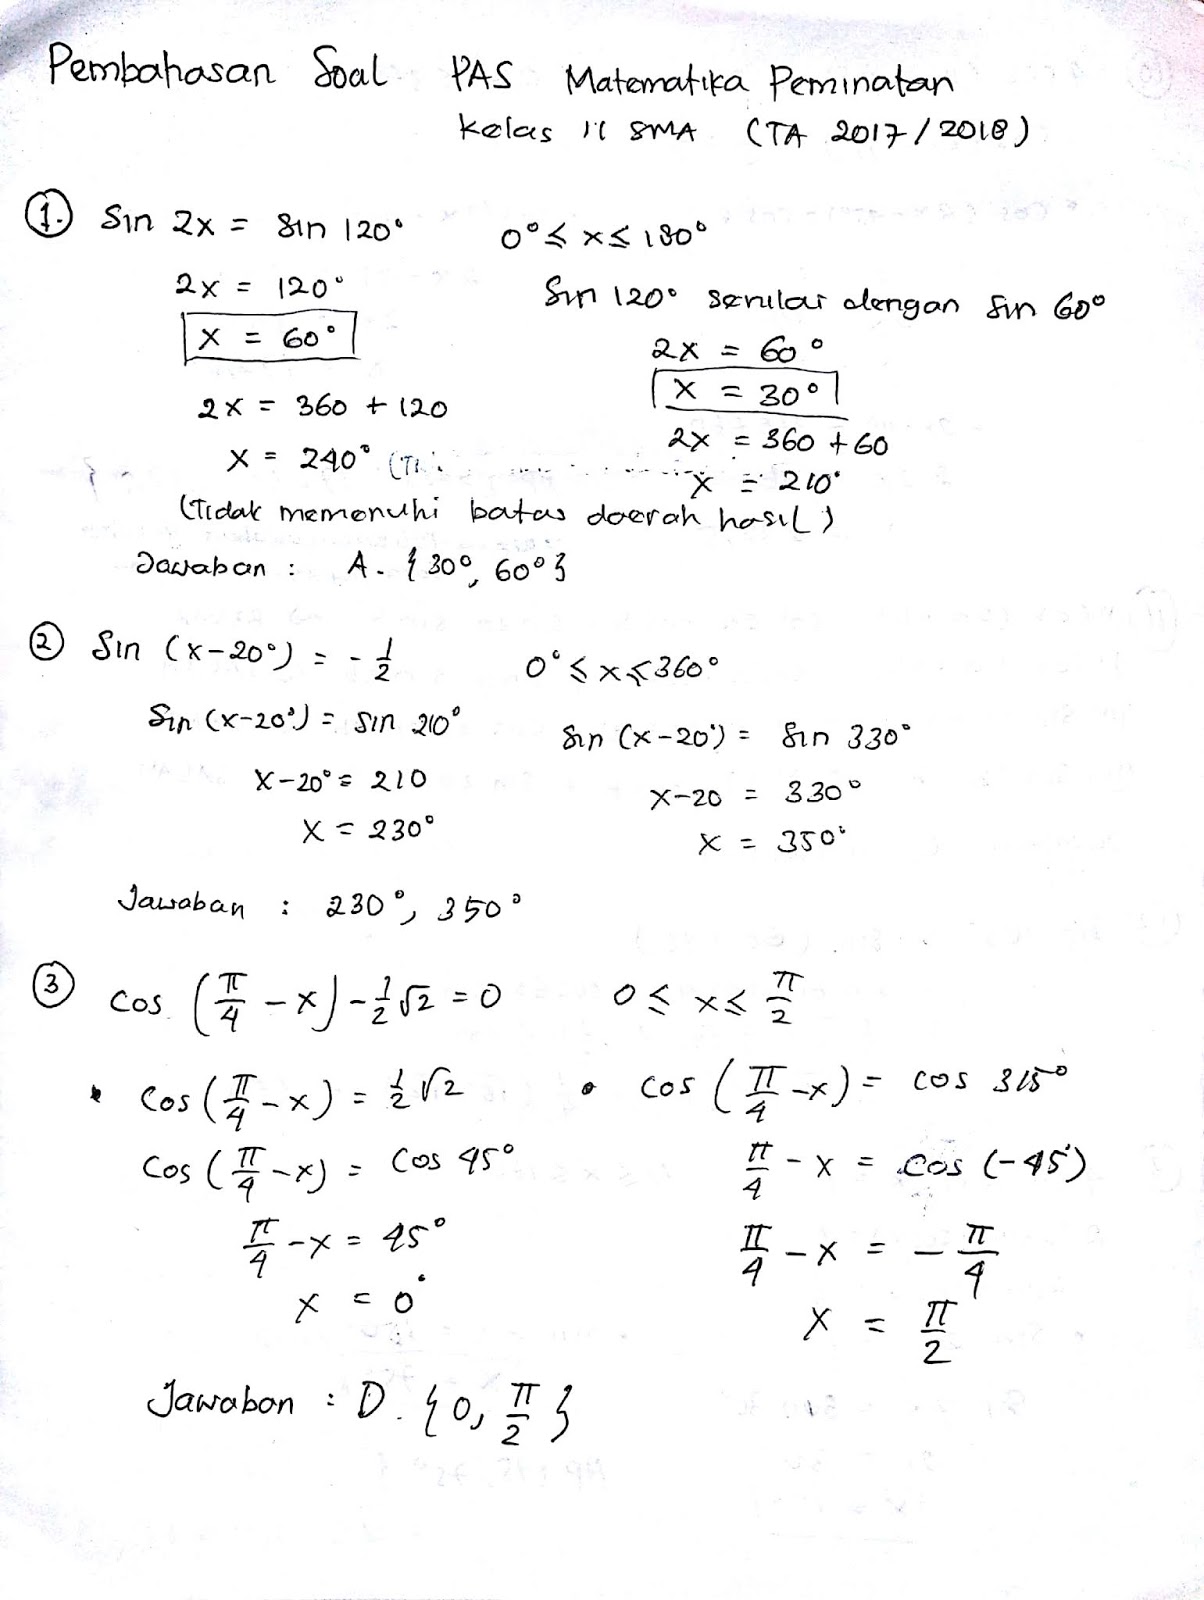 Pembahasan Soal PAS Matematika Peminatan
Kelas 11 SMA (TA 2017/2018)
1. Sin 2x = Sin 120° 0° ≤ x ≤ 180°
2x = 120°
x = 60°
2x = 360 + 120
x = 240° (Ti
Sin 120° senilai dengan Sin 60°
2x = 60°
x = 30°
2x = 360 + 60
x = 210°
(Tidak memenuhi batas daerah hasil)
Jawaban : A. {30°, 60°}
2 Sin (x-20°) = -1/2 0° ≤ x ≤ 360°
Sin (x-20°) = Sin 210°
x-20° = 210
x = 230°
Sin (x-20°) = Sin 330°
x-20 = 330°
x = 350°
Jawaban : 230°, 350°
3 Cos (π/4 - x) - 1/2 √2 = 0 0 ≤ x ≤ π/2
• Cos (π/4 - x) = 1/2 √2
Cos (π/4 - x) = Cos 45°
π/4 - x = 45°
x = 0°
• Cos (π/4 - x) = Cos 315°
π/4 - x = Cos (-45°)
π/4 - x = - π/4
x = π/2
Jawaban : D. {0, π/2}